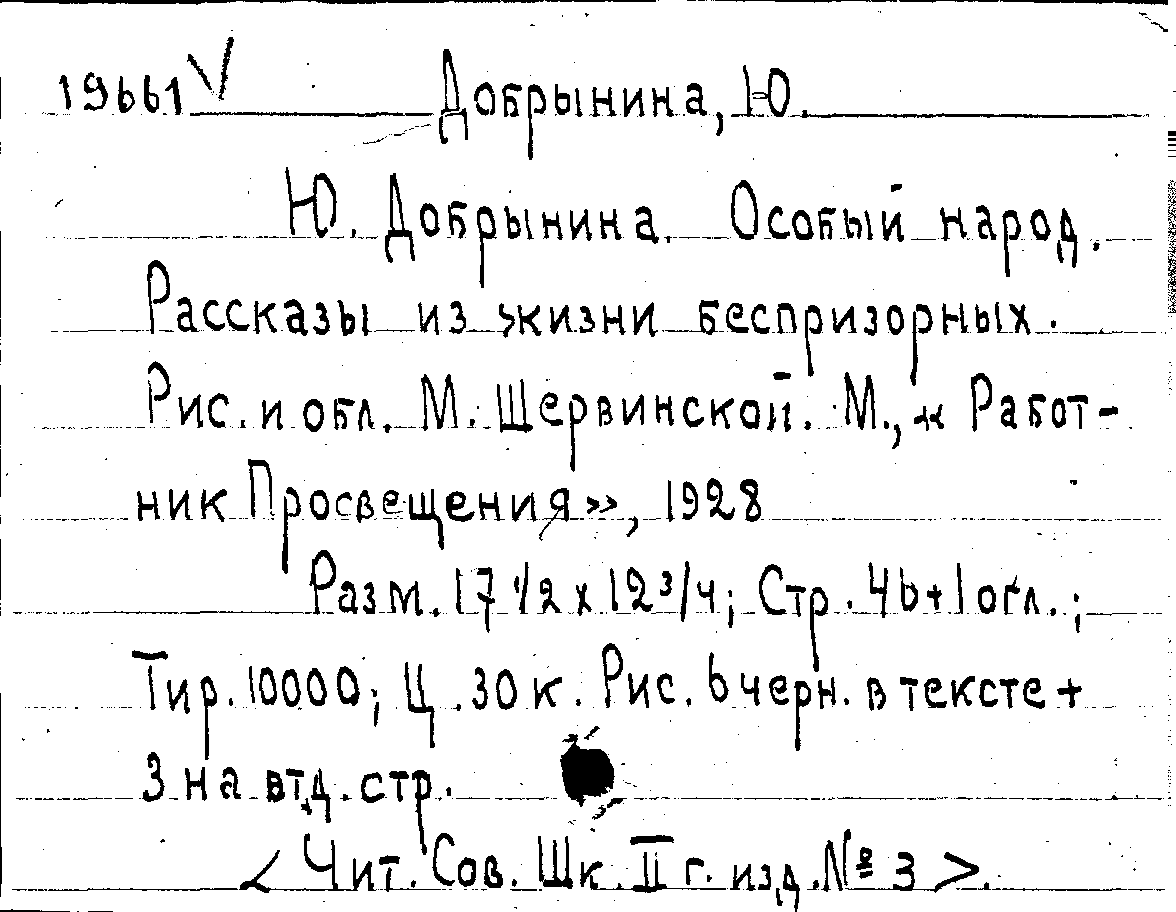 19661 √ Добрынина, Ю.
Ю. Добрынина. Особый народ.
Рассказы из жизни беспризорных.
Рис. и обл. М. Шервинской. М., « Работ-
ник Просвещения», 1928
Разм. 17 1/2 x 12 3/4; Стр. 46+1 огл.;
Тир. 10000; Ц. 30 к. Рис. 6 черн. в тексте +
3 на втд. стр.
< Чит. Сов. Шк. II г. изд. № 3 >.